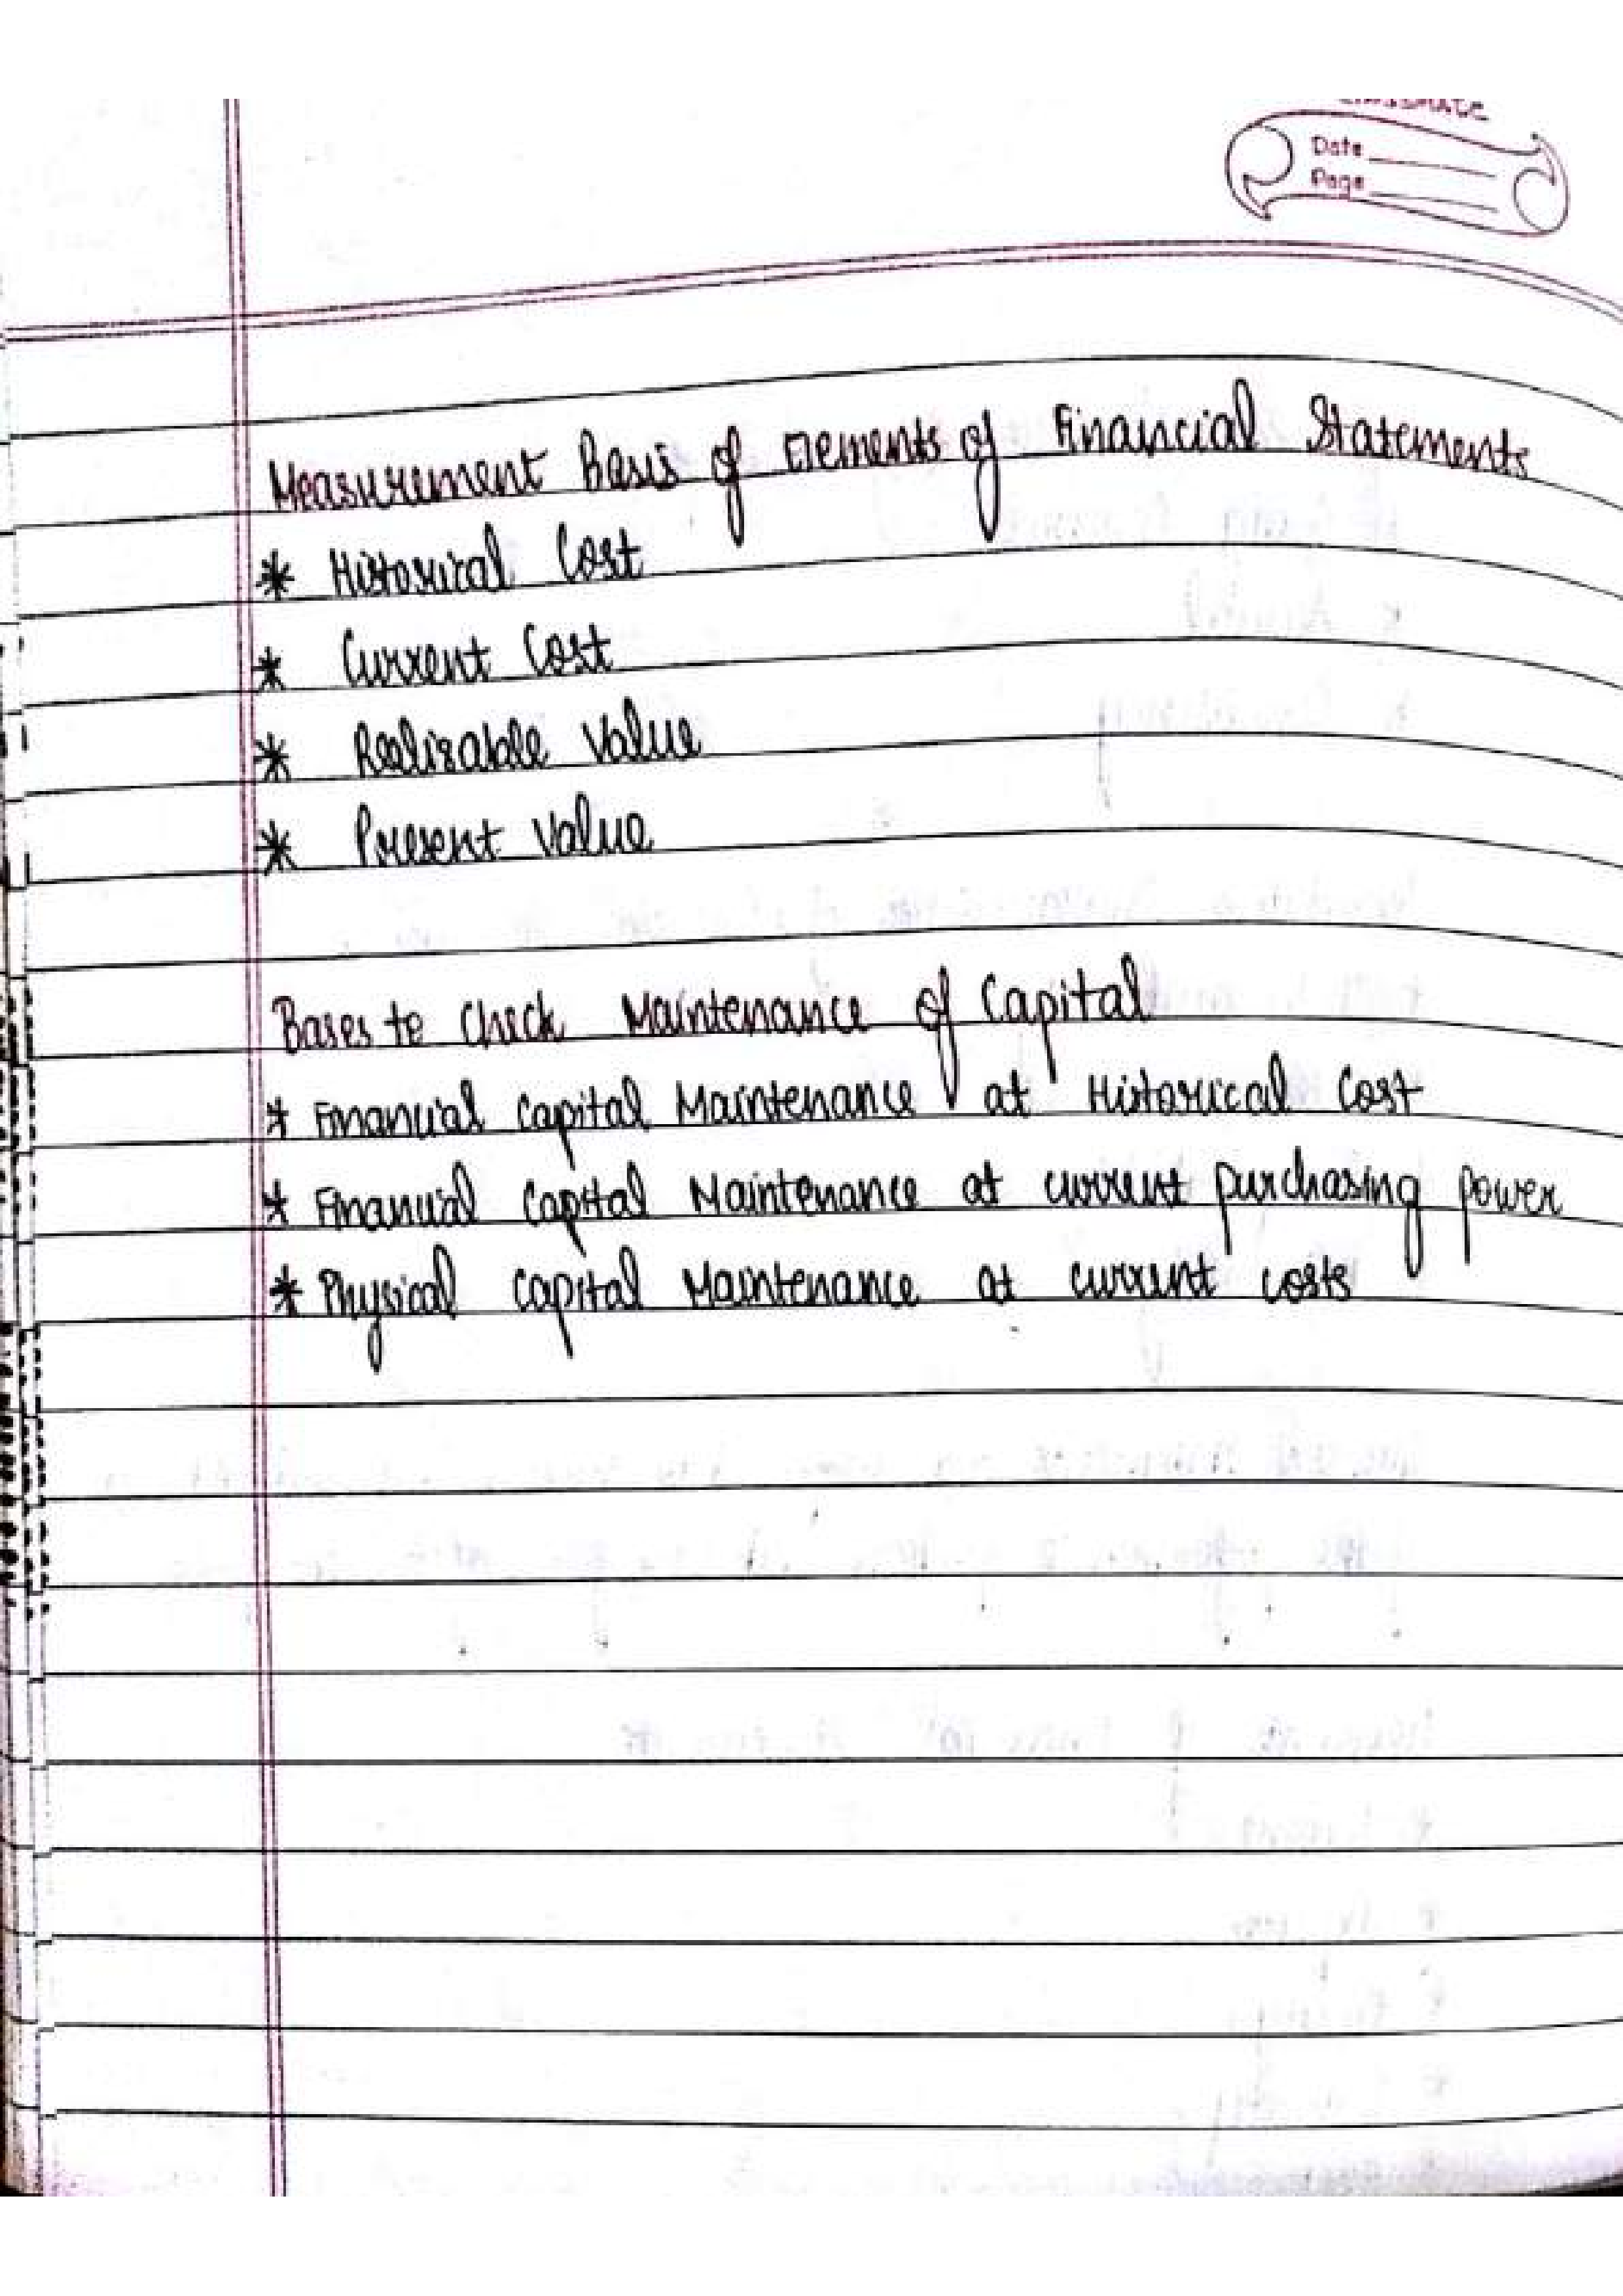 Date
Page
Measurement Basis of Elements of Financial Statements
* Historical Cost
* Current Cost
* Realisable Value
* Present Value
Bases to Check Maintenance of Capital
* Financial Capital Maintenance at Historical Cost
* Financial Capital Maintenance at current purchasing power
* Physical Capital Maintenance at current costs